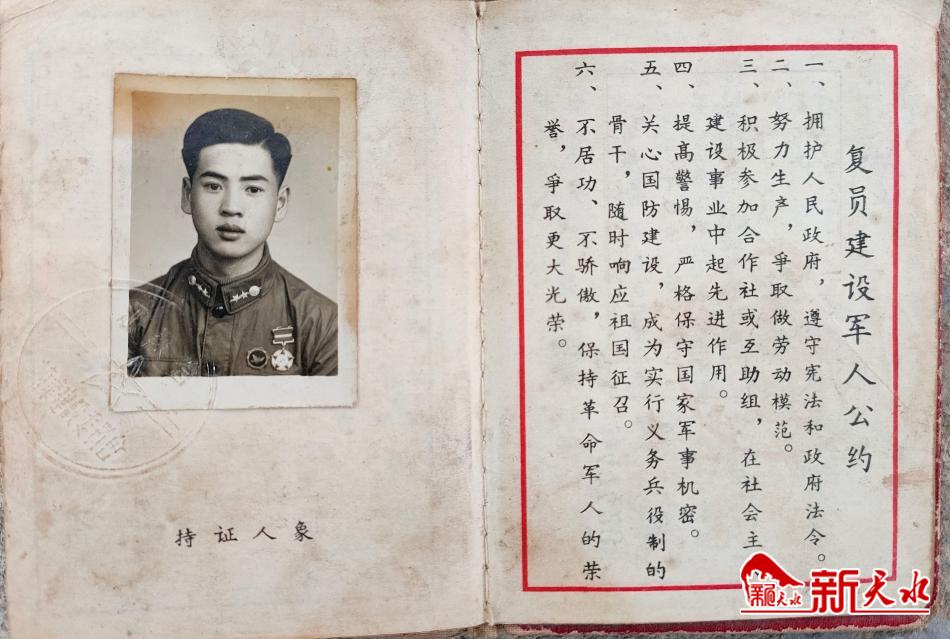 持证人象
复员建设军人公约
一、拥护人民政府，遵守宪法和政府法令。
二、努力生产，爭取做劳动模范。
三、积极参加合作社或互助组，在社会主
建设事业中起先进作用。
四、提高警惕，严格保守国家军事机密。
五、关心国防建设，成为实行义务兵役制的
骨干，随时响应祖国征召。
六、不居功、不骄傲，保持革命军人的荣
誉，爭取更大光荣。
新天水